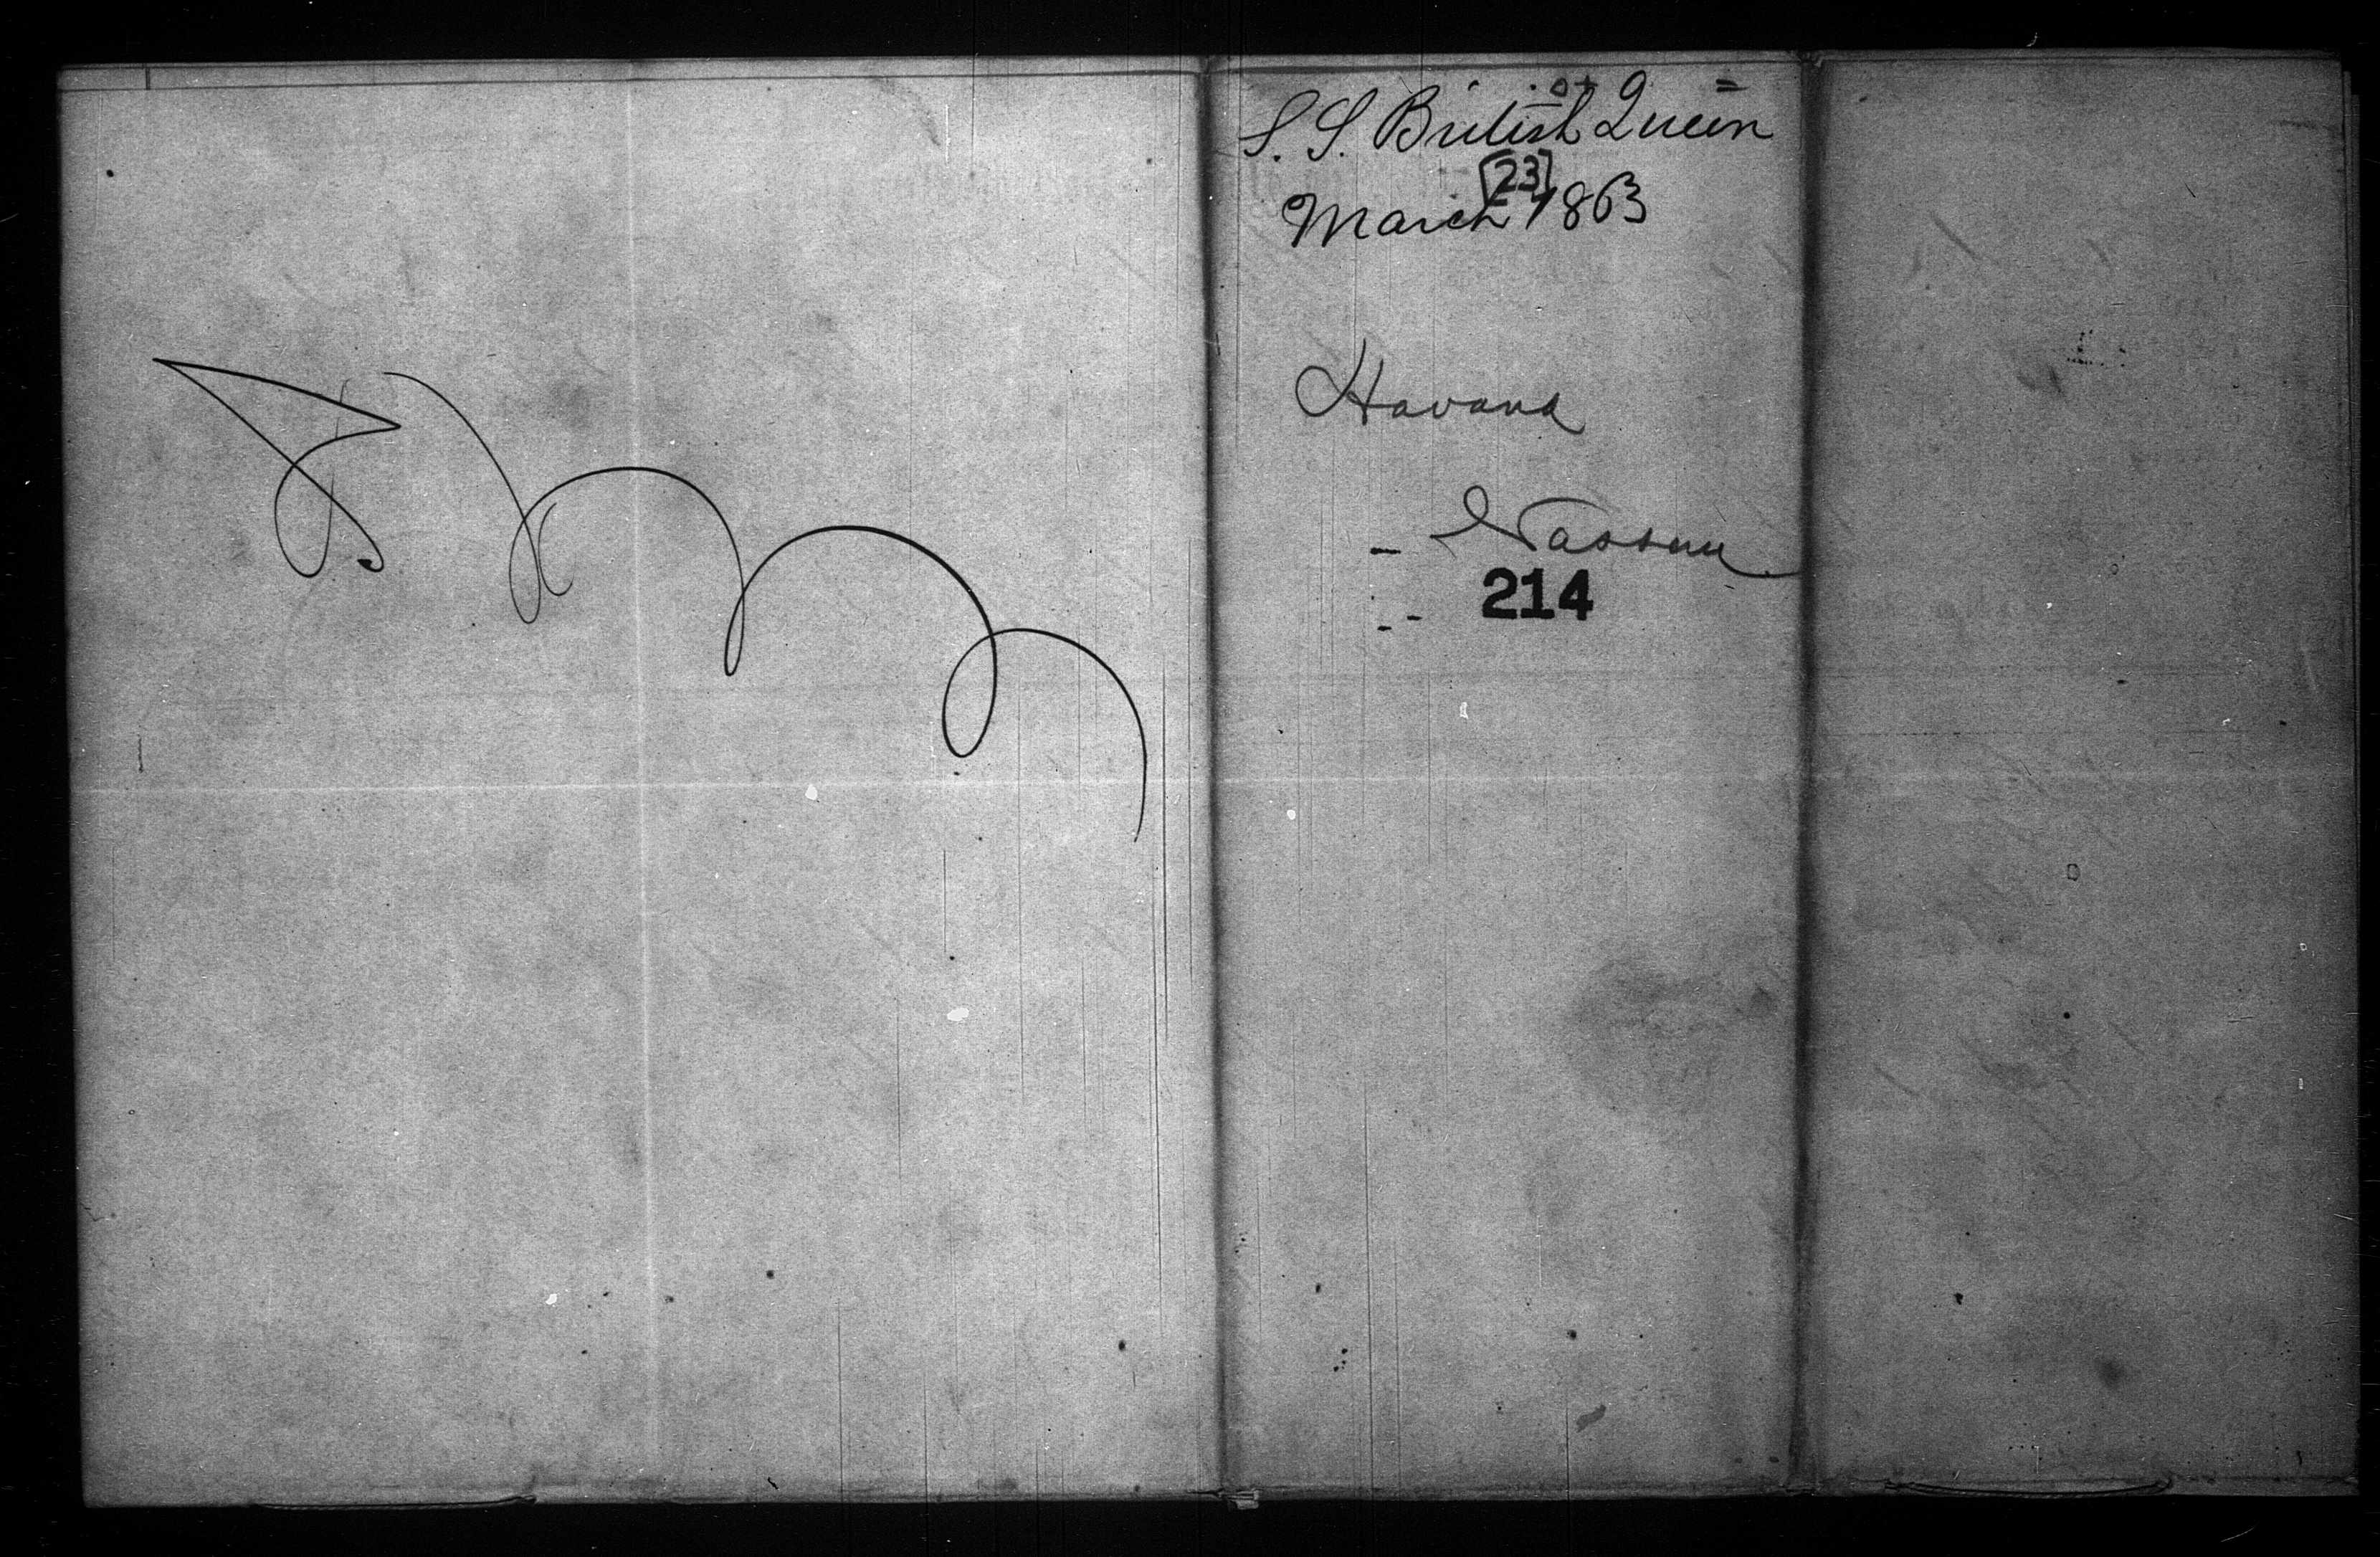 S. S. British Queen
[23]
March 1863
Havana
Nassau
214